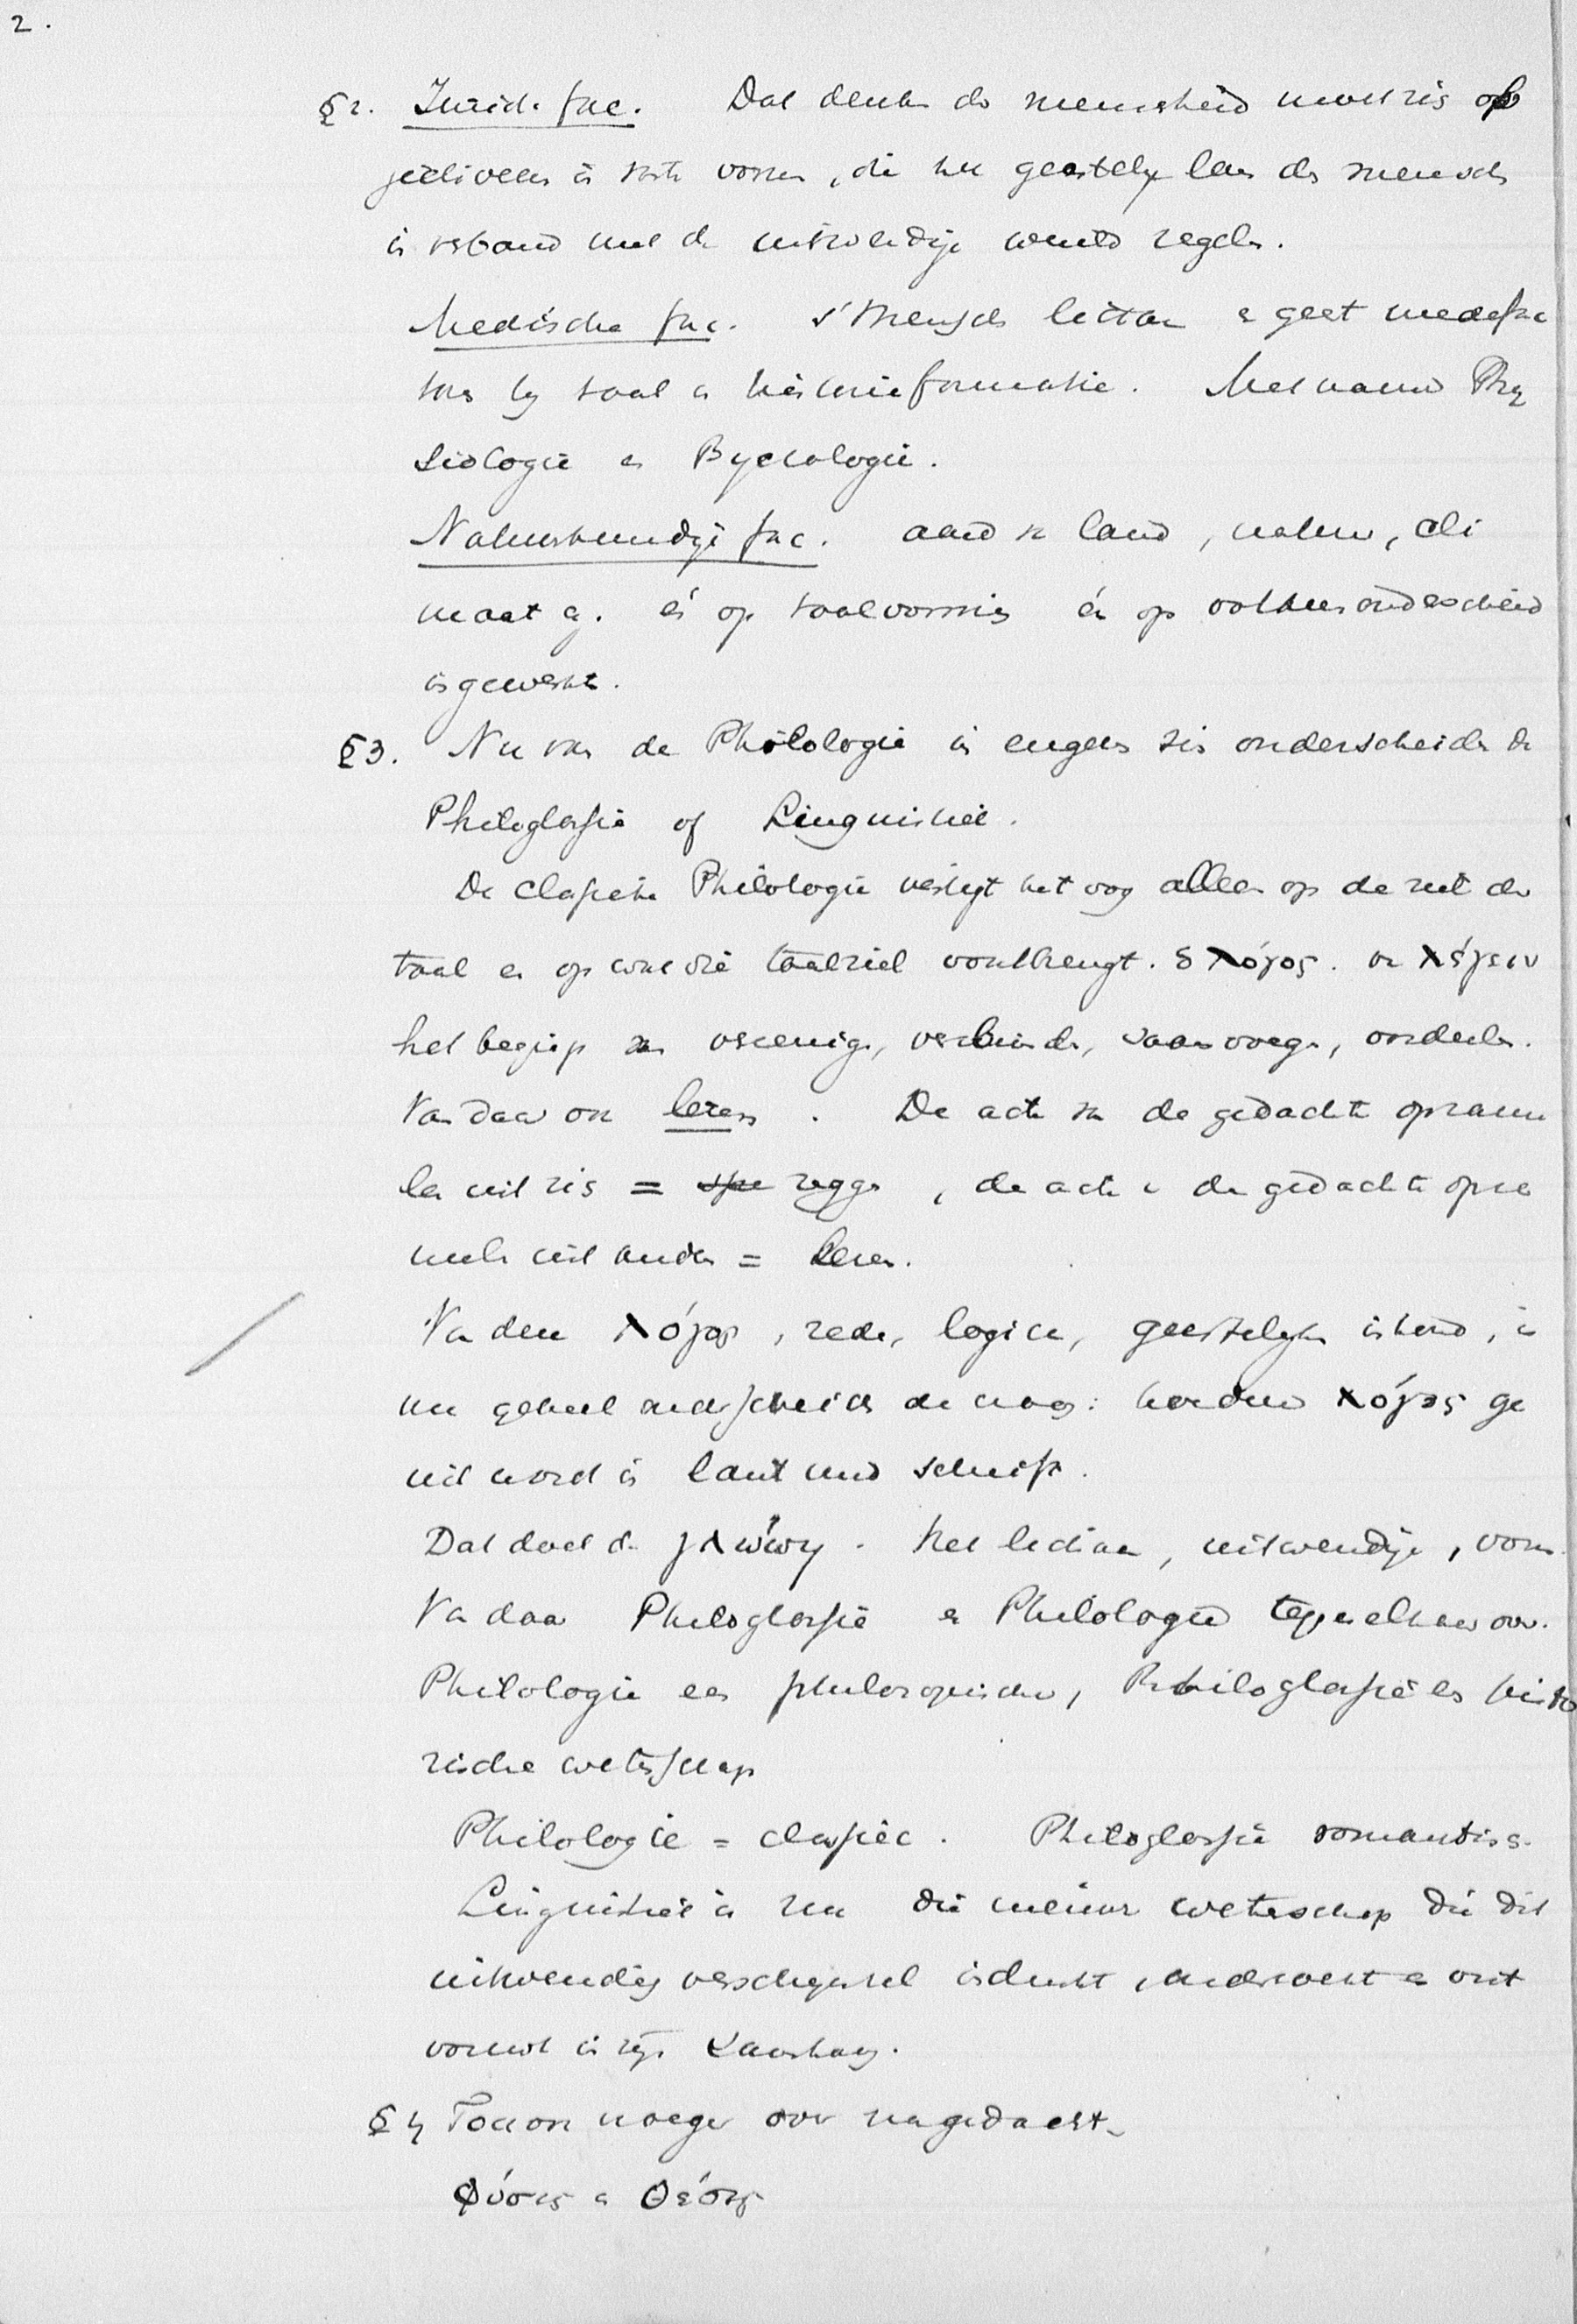 2.
§2. Jurid. fac. Dat denken der menschheid moet zich op
in vaste vormen, die het geestelijk leven der mensch
in verband met de uitwendige wereld regelen.
Medische fac. 's menschen lichaam en geest medefac
tor bij taal en historieformatie. Met name Phy
siologie en Psychologie.
Natuurkundige fac. aard van land, natuur, cli
maat enz. én op taalvorming én op volkeren onderscheid
is gewerkt.
§3. Nu van de Philologie in engeren zin onderscheiden de
Philoglossie of Linguistiek.
De classieke Philologie vestigt het oog alleen op de ziel der
taal en op wat die taalziel voortbrengt. ὁ λόγος. van λέγειν
het begrip van vereenigen, verbinden, samenvoegen, oordeelen.
Van daar ook lezen. De acte van de gedachte opzame
len uit zich = zeggen, de acte van de gedachte opza
melen uit ander = lezen.
Van den λόγος, rede, logica, geestelijken inhoud, is
nu geheel onderscheiden de vraag: hoe deze λόγος ge
uit word in taal en schrift.
Dat doet de γλῶσση. Het lichaam, uitwendige, vorm.
Van daar Philoglossie en Philologie tegenelkaar over.
Philologie een philosophische, Philoglossie een histo
rische wetenschap
Philologie = classiec. Philoglossie romantisc.
Linguistiek is nu die nieuwe wetenschap die dit
uitwendig verschijnsel indenkt, onderzoekt en ont
vouwt in zijn samenhang.
§4 Ook vroeger over nagedacht.
Φύσις en Θέσις